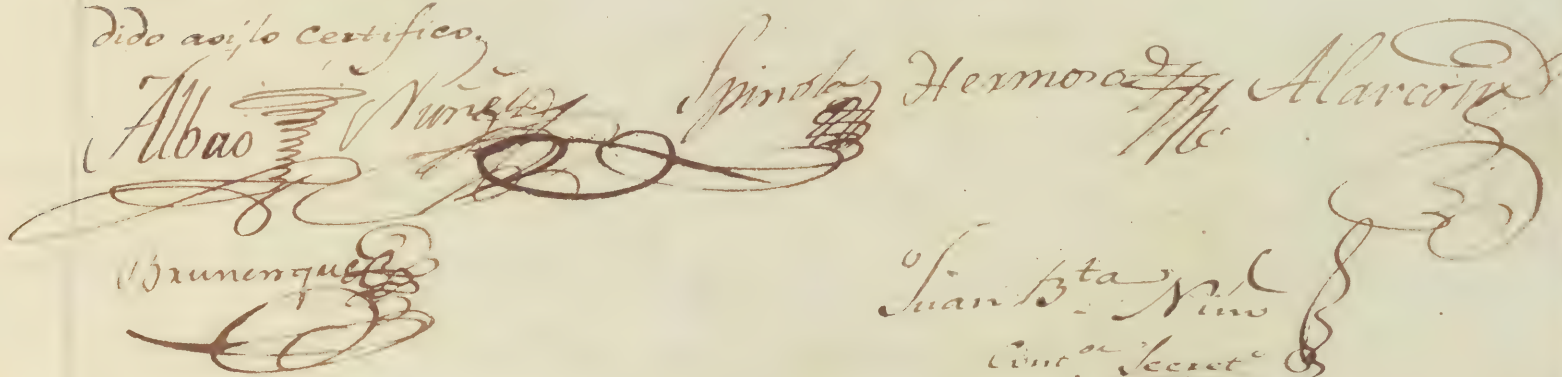 dido asi, lo certifico.
Albao Nuñez Spinola Hermosa Alarcon
Brunenque
Juan Bta. Nino
Contor. Secreto